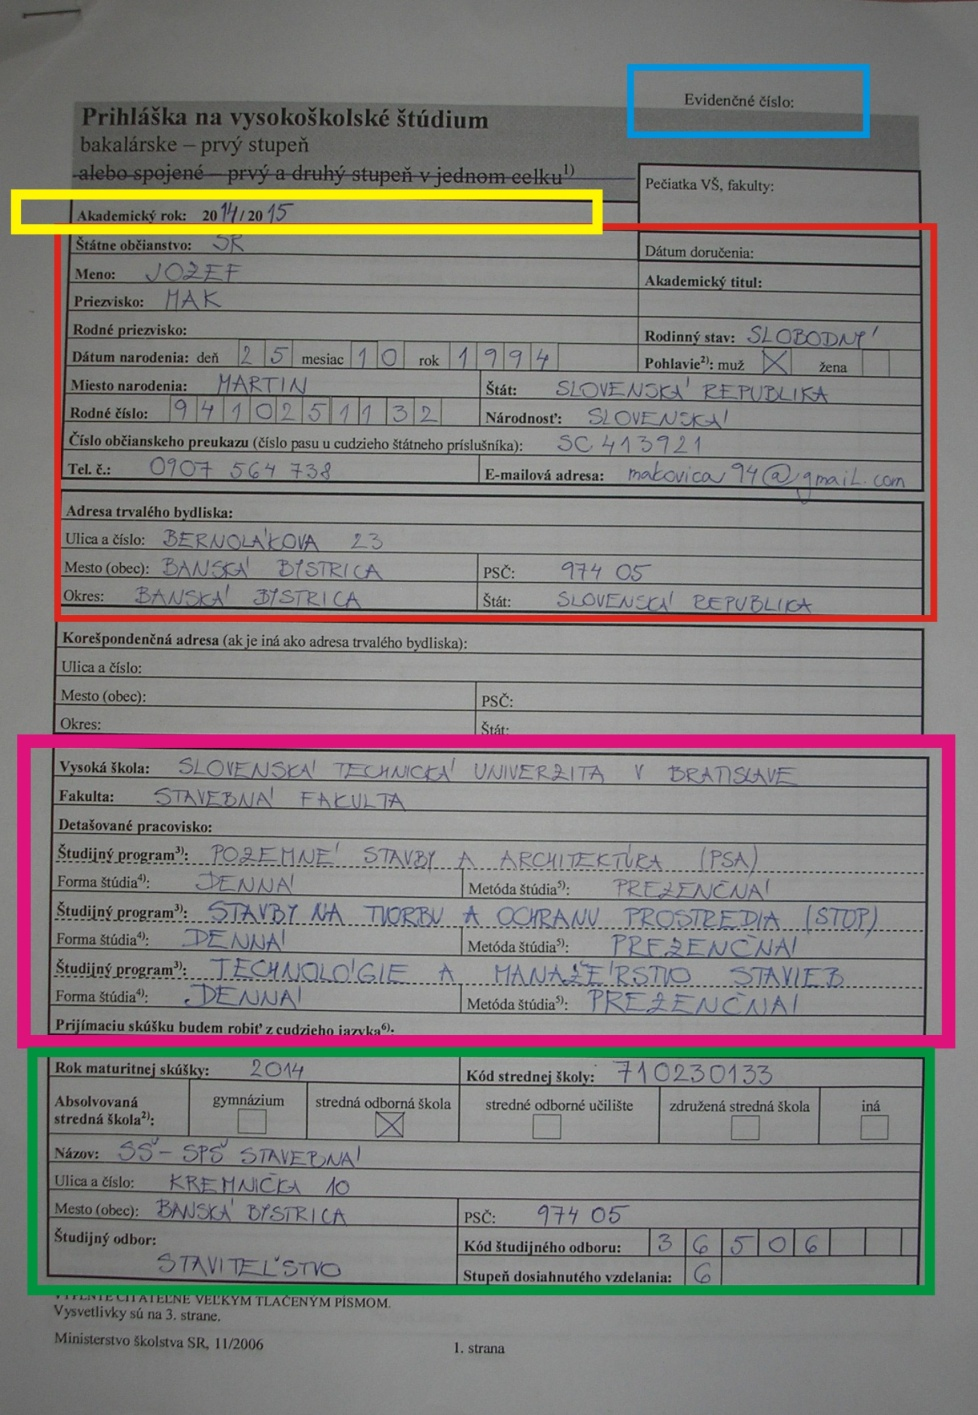 Evidenčné číslo:
Prihláška na vysokoškolské štúdium
bakalárske – prvý stupeň
alebo spojené – prvý a druhý stupeň v jednom celku¹⁾
Pečiatka VŠ, fakulty:
Akademický rok: 2014/2015
Štátne občianstvo: SR
Dátum doručenia:
Meno: JOZEF
Akademický titul:
Priezvisko: MAK
Rodné priezvisko:
Rodinný stav: SLOBODNÝ
Dátum narodenia: deň 25 mesiac 10 rok 1994
Pohlavie²⁾: muž X žena
Miesto narodenia: MARTIN
Štát: SLOVENSKÁ REPUBLIKA
Rodné číslo: 9410251132
Národnosť: SLOVENSKÁ
Číslo občianskeho preukazu (číslo pasu u cudzieho štátneho príslušníka): SC 413921
Tel. č.: 0907 564 738
E-mailová adresa: makovica94@gmail.com
Adresa trvalého bydliska:
Ulica a číslo: BERNOLÁKOVA 23
Mesto (obec): BANSKÁ BYSTRICA
PSČ: 974 05
Okres: BANSKÁ BYSTRICA
Štát: SLOVENSKÁ REPUBLIKA
Korešpondenčná adresa (ak je iná ako adresa trvalého bydliska):
Ulica a číslo:
Mesto (obec):
PSČ:
Okres:
Štát:
Vysoká škola: SLOVENSKÁ TECHNICKÁ UNIVERZITA V BRATISLAVE
Fakulta: STAVEBNÁ FAKULTA
Detašované pracovisko:
Študijný program³⁾: POZEMNÉ STAVBY A ARCHITEKTÚRA (PSA)
Forma štúdia⁴⁾: DENNÁ
Metóda štúdia⁵⁾: PREZENČNÁ
Študijný program³⁾: STAVBY NA TVORBU A OCHRANU PROSTREDIA (STOP)
Forma štúdia⁴⁾: DENNÁ
Metóda štúdia⁵⁾: PREZENČNÁ
Študijný program³⁾: TECHNOLÓGIE A MANAŽÉRSTVO STAVIEB
Forma štúdia⁴⁾: DENNÁ
Metóda štúdia⁵⁾: PREZENČNÁ
Prijímaciu skúšku budem robiť z cudzieho jazyka⁶⁾:
Rok maturitnej skúšky: 2014
Kód strednej školy: 710230133
Absolvovaná stredná škola²⁾:
gymnázium
stredná odborná škola X
stredné odborné učilište
združená stredná škola
iná
Názov: SŠ – SPŠ STAVEBNÁ
Ulica a číslo: KREMNIČKA 10
Mesto (obec): BANSKÁ BYSTRICA
PSČ: 974 05
Študijný odbor: STAVITEĽSTVO
Kód študijného odboru: 36506
Stupeň dosiahnutého vzdelania: 6
VYPLŇTE ČITATEĽNE VEĽKÝM TLAČENÝM PÍSMOM.
Vysvetlivky sú na 3. strane.
Ministerstvo školstva SR, 11/2006
1. strana